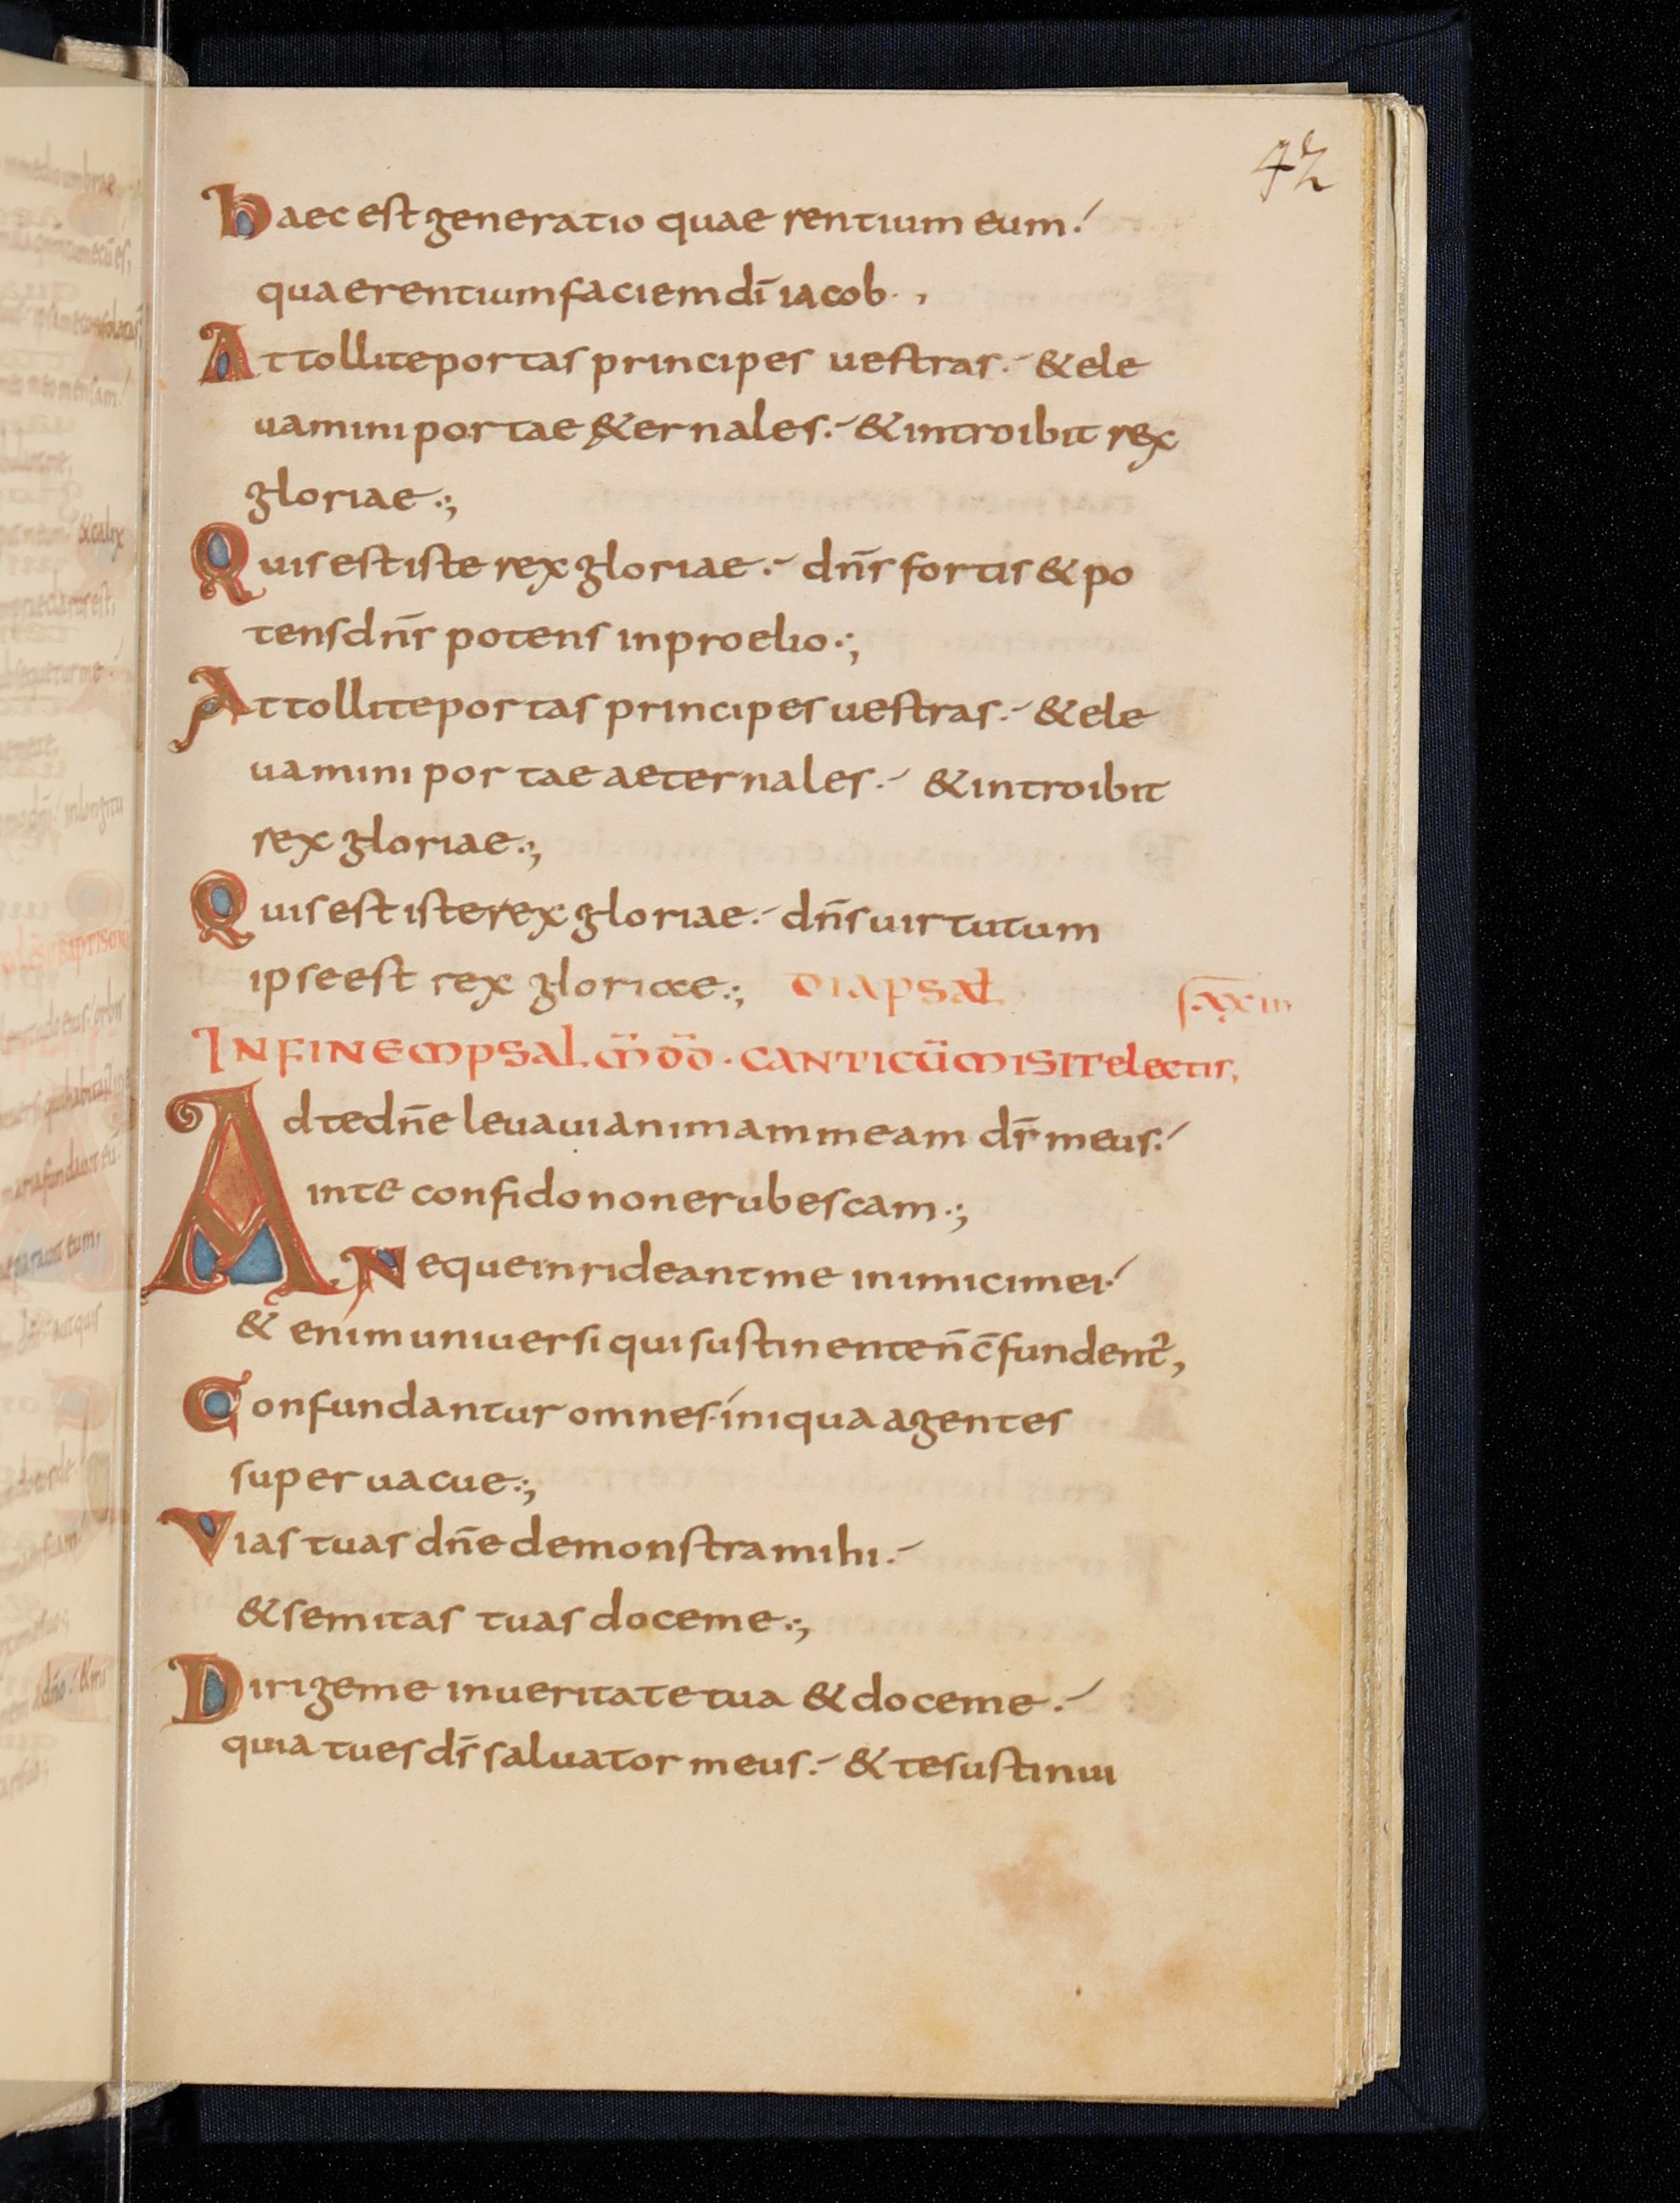 42
Haec est generatio quae rentium eum:
quaerentium faciem dī iacob.,
Attollite portas principes uestras:- & ele
uamini portae &ernales:- & introibit rex
gloriae:;
Quis est iste rex gloriae:- dn̄s fortis & po
tens dn̄s potens in proelio:;
Attollite portas principes uestras:- & ele
uamini portae aeternales:- & introibit
rex gloriae:;
Quis est iste rex gloriae:- dn̄s uirtutum
ipse est rex gloriae:; DIAPSAƚ.
IN FINEM PSAL. D̄D̄. CANTICŪ MISIT electis,
Ad te dn̄e leuaui animam meam ds̄ meus:
in te confido non erubescam:;
Neque inrideant me inimici mei:
& enim uniuersi qui sustinent te n̄ c̄fundent᷑,
Confundantur omnes iniqua agentes
superuacue:;
Vias tuas dn̄e demonstra mihi:-
& semitas tuas doce me:;
Dirige me in ueritate tua & doce me:-
quia tu es ds̄ saluator meus:- & te sustinui